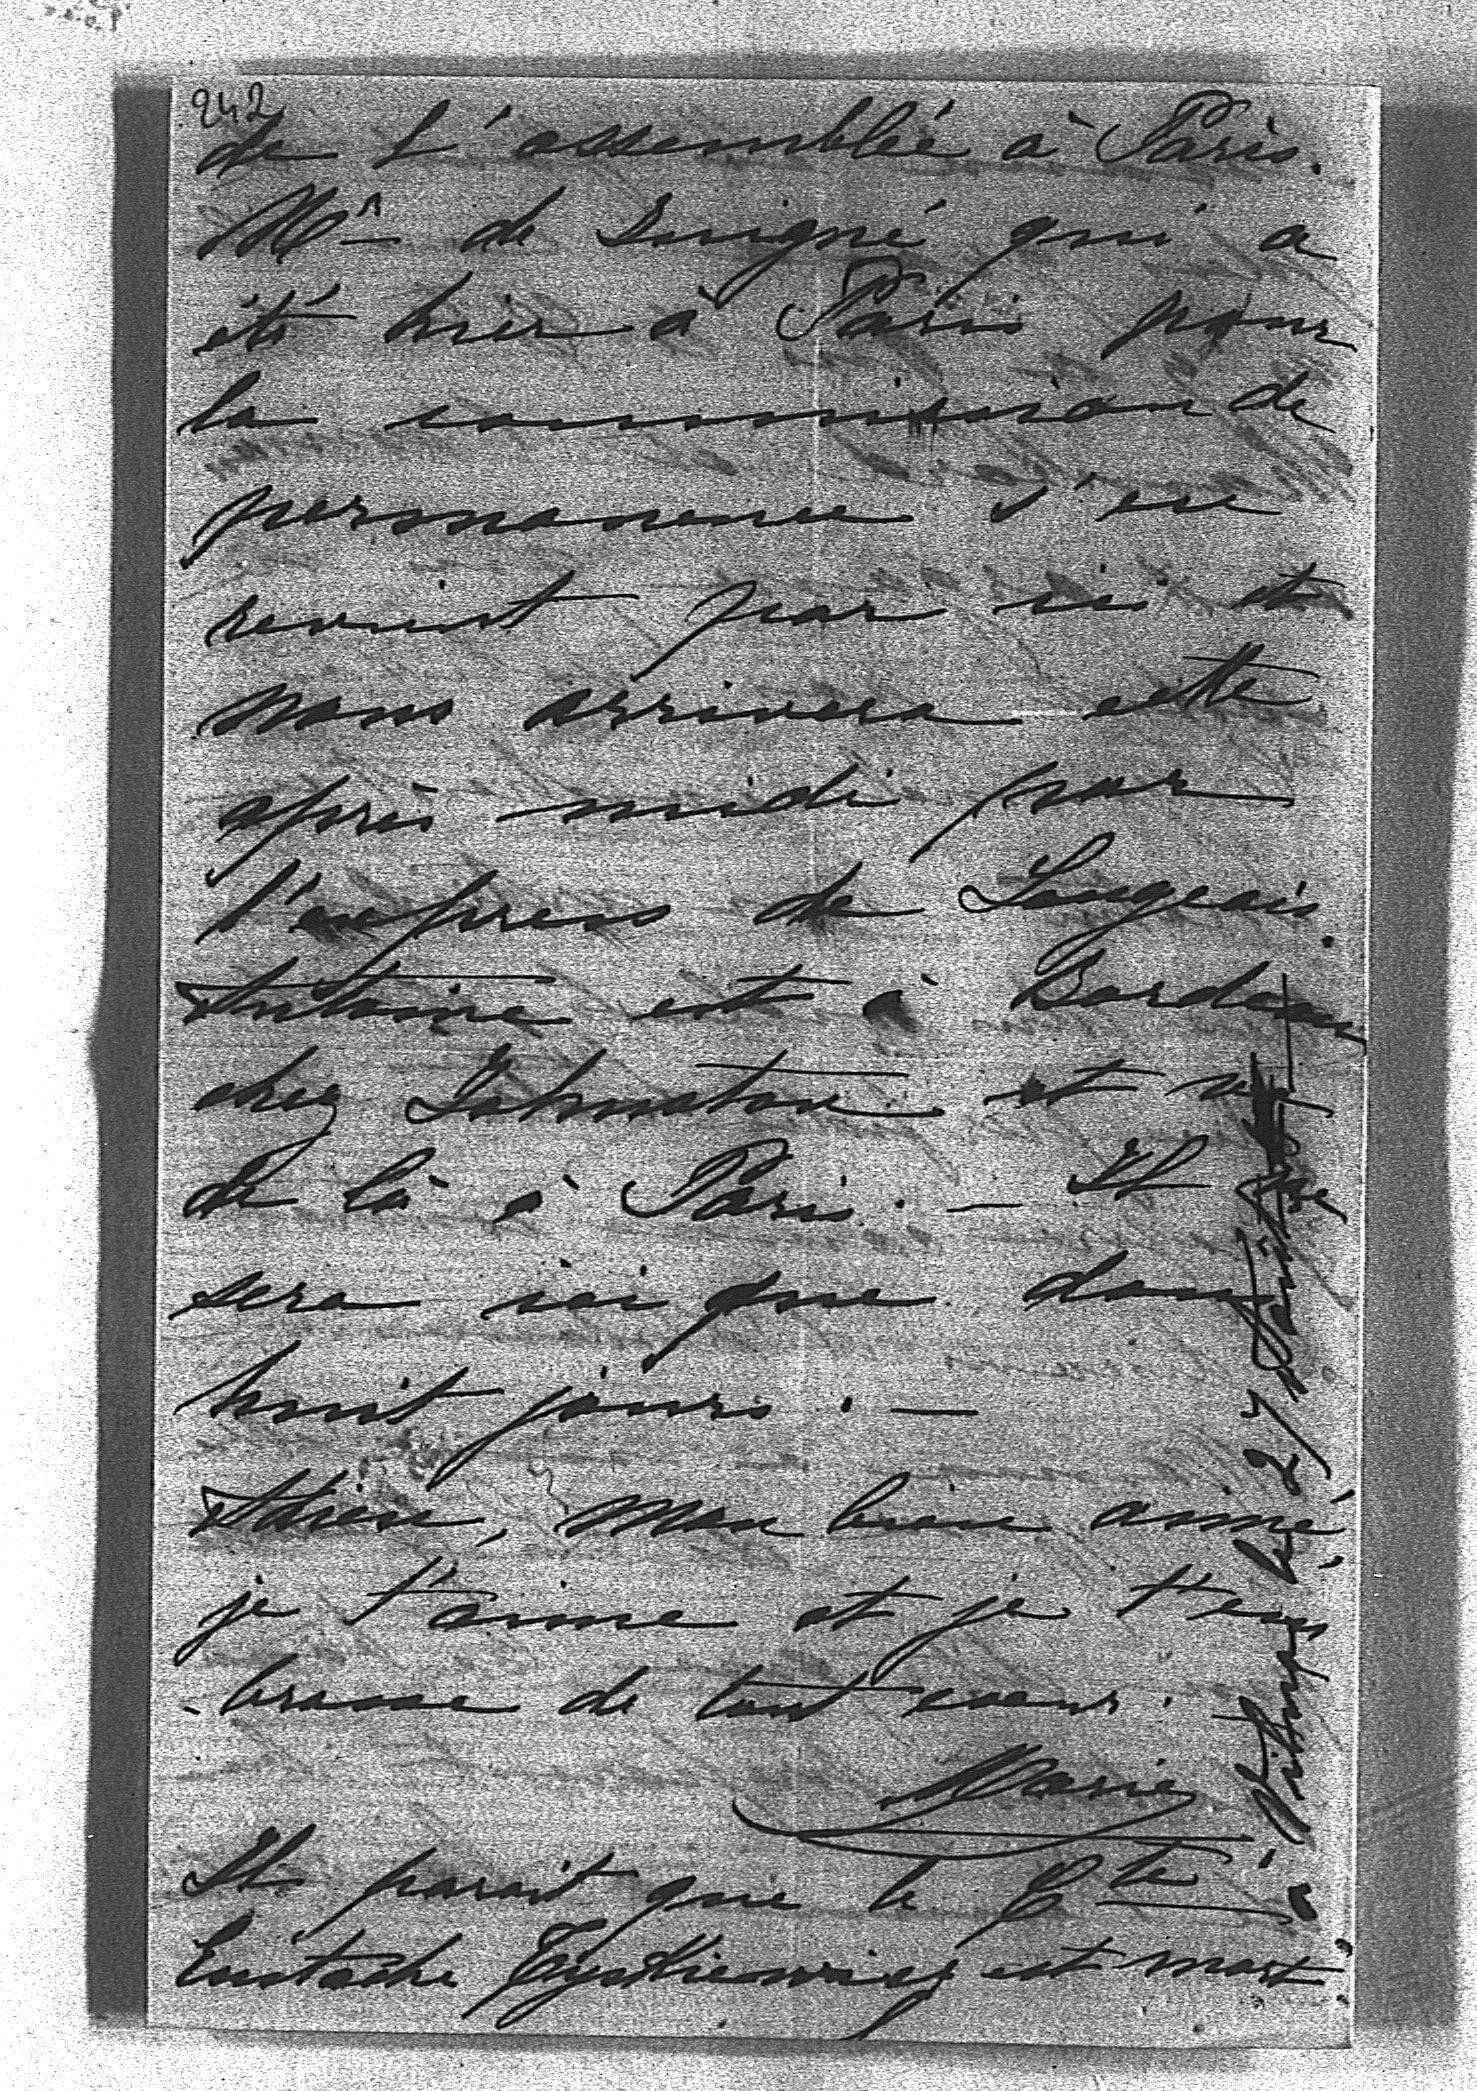 242
de l'assemblée à Paris.
Mr de Juigné qui a
été hier à Paris pour
la commission de
permanence s'en
revient par ici et
nous arrivera cette
après midi par
l'express de Langeais.
Antoine est à Bordeaux
chez Johnston et va
de là à Paris. — Il ne
sera ici que dans
huit jours. —
Adieu, mon bien aimé,
je t'aime et je t'em
-brasse de tout cœur.
Marie
Il parait que le Cte
Eustache Tyszkiewicz est mort
à Vilna le 27